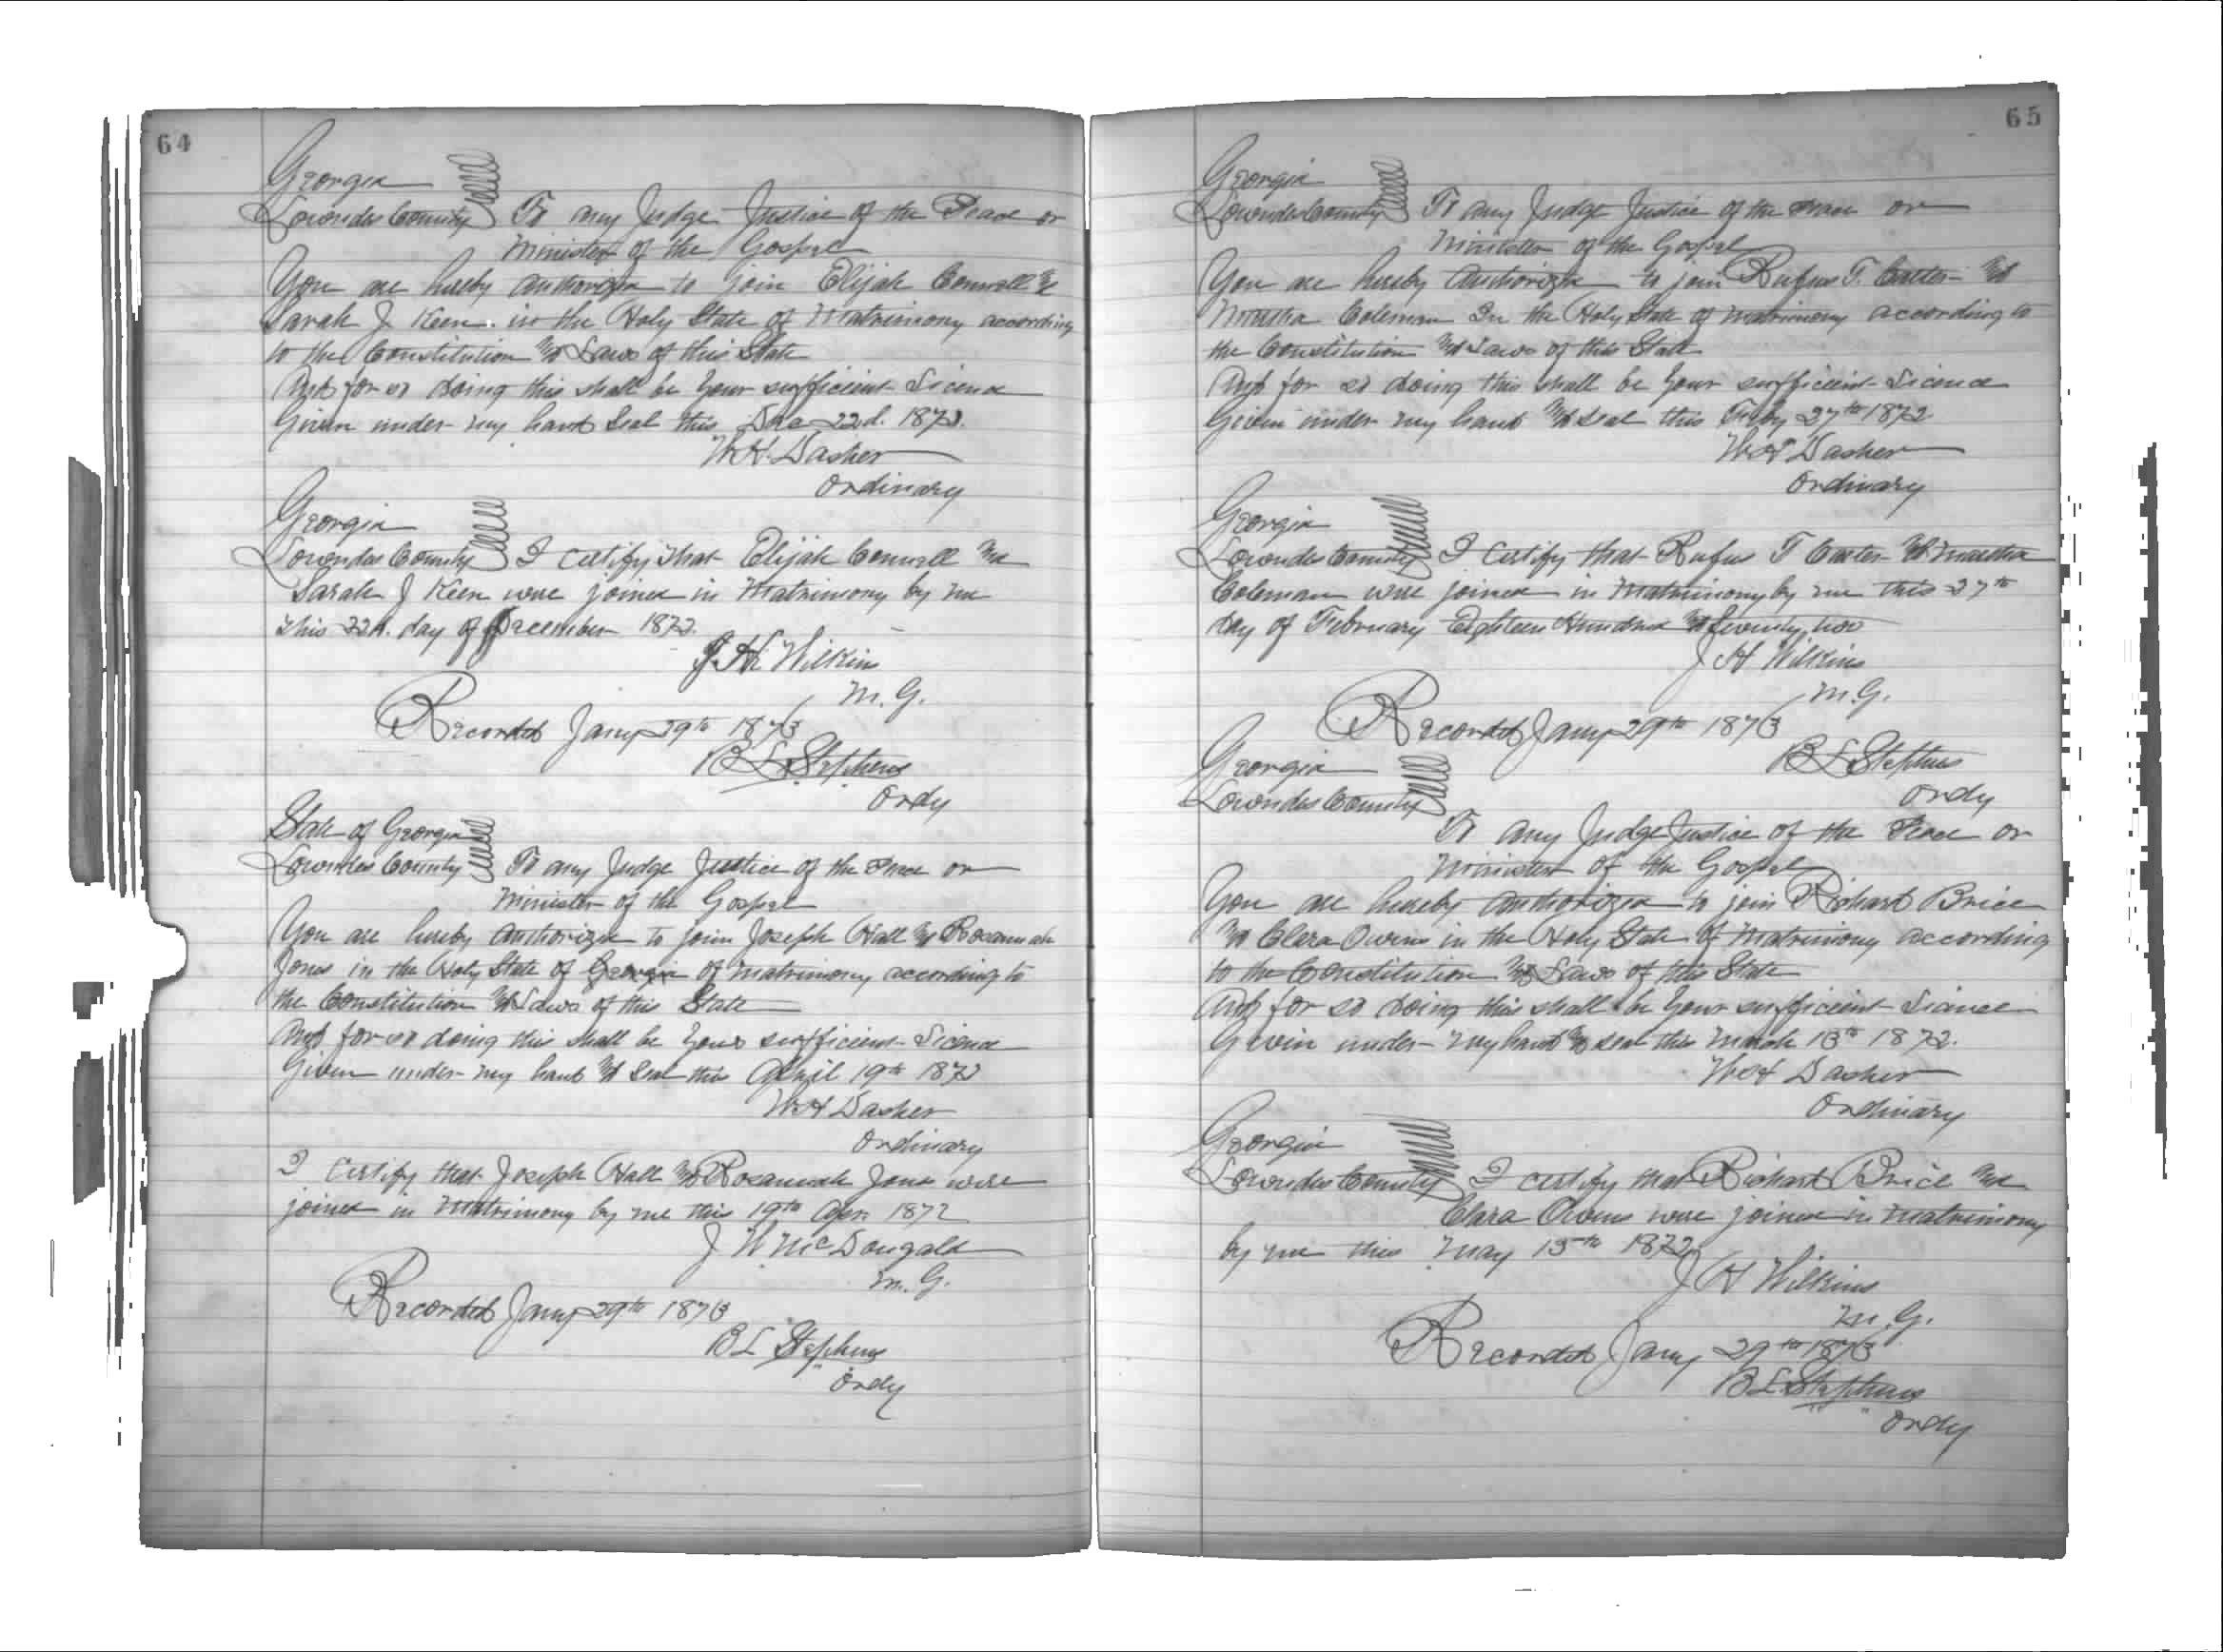 64
Georgia
Lowndes County To any Judge Justice of the Peace or
Minister of the Gospel
You are hereby authorized to join Elijah Connell &
Sarah J Keen in the Holy State of Matrimony according
to the Constitution & Laws of this State
And for so doing this shall be your sufficient Licence
Given under my hand Seal this Dec 22d. 1872.
W.H. Dasher
Ordinary
Georgia
Lowndes County I certify that Elijah Connell &
Sarah J Keen were joined in Matrimony by me
This 22d. day of December 1872.
J. H. Wilkins
M. G.
Recorded Jany 29th 1873
B L Stephens
Ordy
State of Georgia
Lowndes County To any Judge Justice of the Peace or
Minister of the Gospel
You are hereby authorized to join Joseph Hall & Rosannah
Jones in the Holy State of Georgia of matrimony according to
the Constitution & Laws of this State
And for so doing this shall be your sufficient Licence
Given under my hand & Seal this April 19th 1872
W H Dasher
Ordinary
I Certify that Joseph Hall & Rosannah Jones were
joined in Matrimony by me this 19th Apr. 1872
J W McDougald
M. G.
Recorded Jany 29th 1873
B L Stephens
Ordy
65
Georgia
Lowndes County To any Judge Justice of the Peace or
Minister of the Gospel
You are hereby Authorized to join Rufus T. Carter &
Martha Coleman In the Holy State of matrimony according to
the Constitution & Laws of this State
And for so doing this shall be your sufficient Licence
Given under my hand & seal this Feby 27th 1872
W H Dasher
Ordinary
Georgia
Lowndes County I Certify that Rufus T Carter & Martha
Coleman were joined in Matrimony by me this 27th
day of February Eighteen Hundred & Seventy two
J H Wilkins
M. G.
Recorded Jany 29th 1873
B L Stephens
Ordy
Georgia
Lowndes County
To any Judge Justice of the Peace or
Minister of the Gospel
You are hereby authorized to join Richard Brice
& Clara Owens in the Holy State of Matrimony according
to the Constitution & Laws of this State
And for so doing this shall be your sufficient Licence
Given under my hand & seal this March 13th 1872.
W H Dasher
Ordinary
Georgia
Lowndes County I certify that Richard Brice &
Clara Owens were joined in matrimony
by me this May 15th 1872
J H Wilkins
M. G.
Recorded Jany 29th 1873
B L Stephens
Ordy